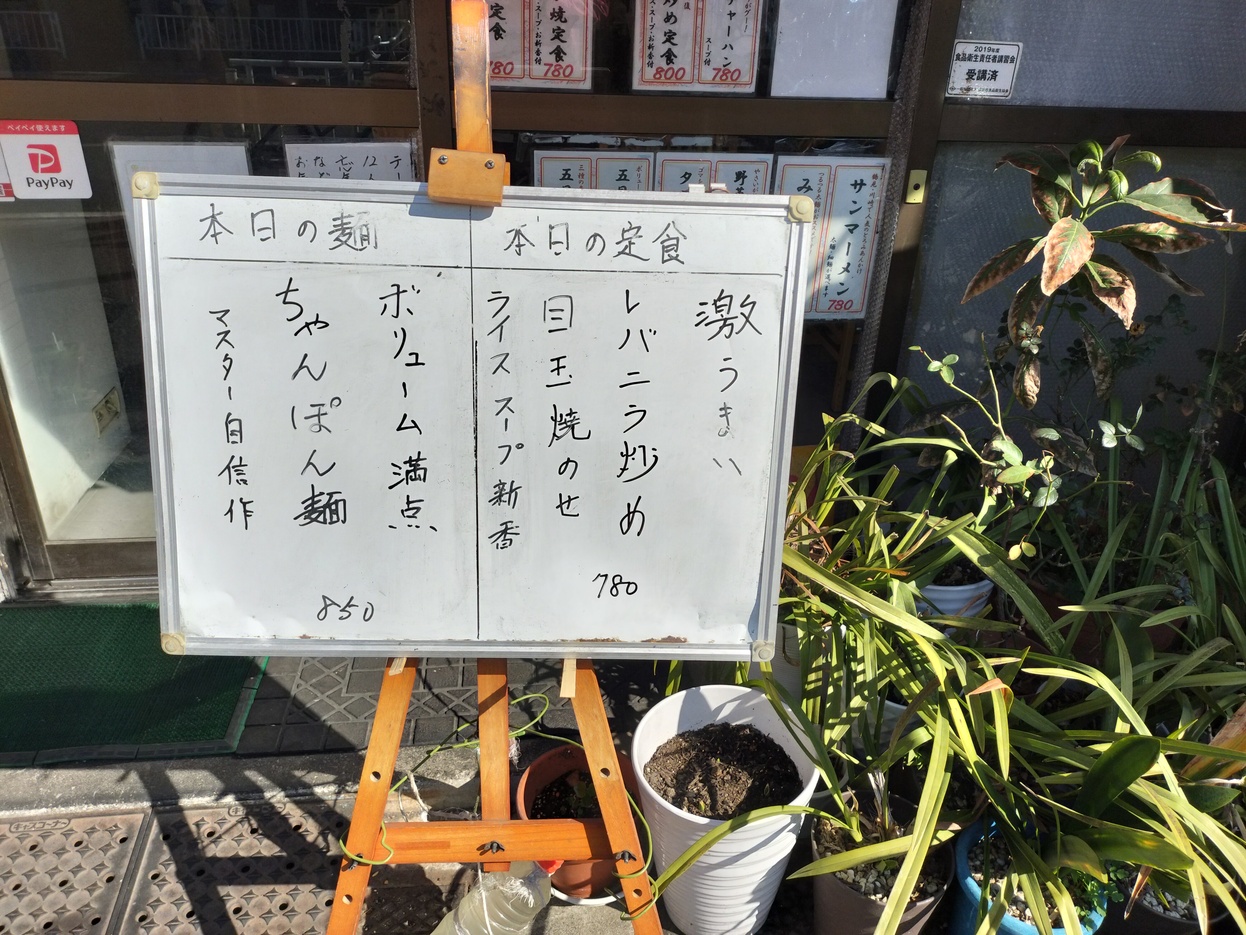 焼定食
スープ・お新香付
780
炒め定食
スープ・お新香付
800
チャーハン
スープ付
780
2019年度
食品衛生責任者講習会
受講済
ペイペイ使えます
PayPay
サンマーメン
780
本日の定食
激うまい
レバニラ炒め
目玉焼のせ
ライススープ新香
780
本日の麺
ボリューム満点
ちゃんぽん麺
マスター自信作
850